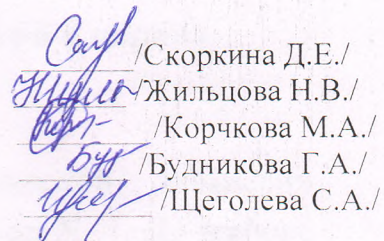 /Скоркина Д.Е./
/Жильцова Н.В./
/Корчкова М.А./
/Будникова Г.А./
/Щеголева С.А./